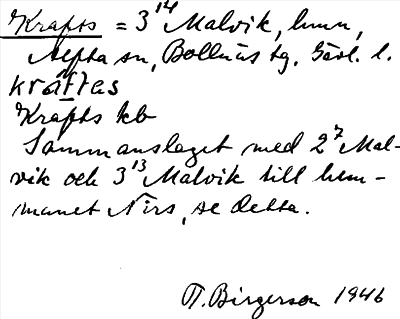 Krafts = 3¹⁴ Malvik, hmn,
Alfta sn, Bollnäs tg. Gävl. l.
kräftas
Krafts kb
Sammanslaget med 2⁷ Mal-
vik och 3¹³ Malvik till hem-
manet Nirs, se detta.
T. Birgerson 1946